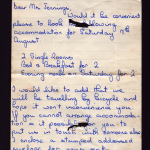 Dear Mr
Would it be convenient
please to book following
accommodation for Saturday
August
2 Single Rooms
Bed & Breakfast for 2
Evening meal on Saturday for 2
I would like to add that we
will be travelling by bicycle and
hope it won't inconvenience you.
If you cannot arrange accommoda-
tion is it possible for you to
put us in touch with someone else
I enclose a stamped addressed